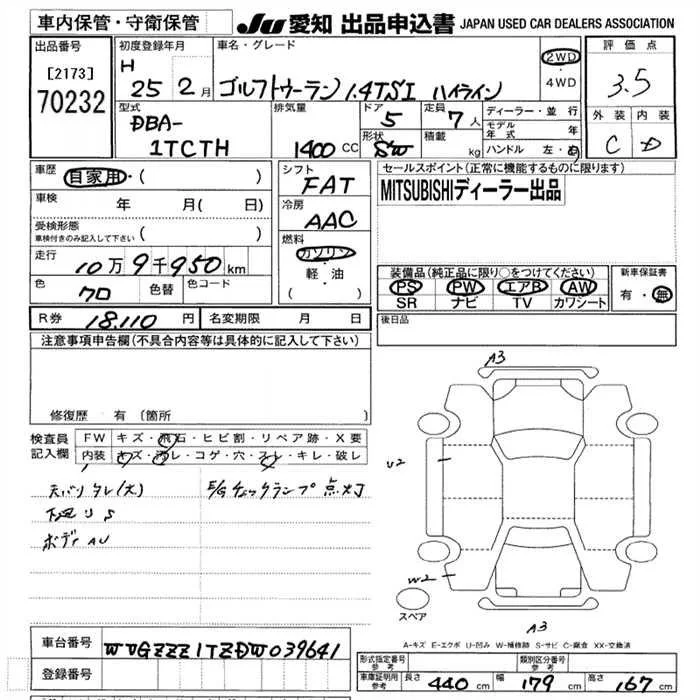 車内保管・守衛保管
JU 愛知 出品申込書 JAPAN USED CAR DEALERS ASSOCIATION
出品番号
[2173]
70232
初度登録年月
H 25年 2月
車名・グレード
ゴルフトゥーラン 1.4TSI ハイライン
2WD
・
4WD
評価点
3.5
外装 内装
C D
型式
DBA-
1TCTH
排気量
1400 CC
ドア
5
定員
7人
形状
SW
積載
kg
ディーラー・並行
モデル年式 年
ハンドル 左・右
車歴
自家用・( )
車検 年 月( 日)
受検形態
車検付きのみ記入して下さい ( )
走行
10万9千950km
色
クロ
色替
色コード
シフト
FAT
冷房
AAC
燃料
ガソリン
・
軽・油
( )
セールスポイント(正常に機能するものに限ります)
MITSUBISHIディーラー出品
装備品(純正品に限り○をつけてください)
PS PW エアB AW
SR ナビ TV カワシート
新車保証書
有・無
R券 18,110円
名変期限 月 日
後日品
注意事項申告欄(不具合内容等は具体的に記入して下さい)
修復歴 有 〔箇所
検査員
記入欄
FW キズ・飛石・ヒビ割・リペア跡・X要
内装 キズ・汚レ・コゲ・穴・スレ・キレ・破レ
天バリタレ(大)
E/Gチェックランプ点灯
下廻りS
ボディAU
A3
U2
W2
スペア
A3
A-キズ E-エクボ U-凹み W-補修跡 S-サビ C-腐食 XX-交換済
車台番号
WVGZZZ1TZDW039641
登録番号
形式指定番号
参考
類別区分番号
参考
車庫証明用
参考
長さ 440cm 幅 179cm 高さ 167cm